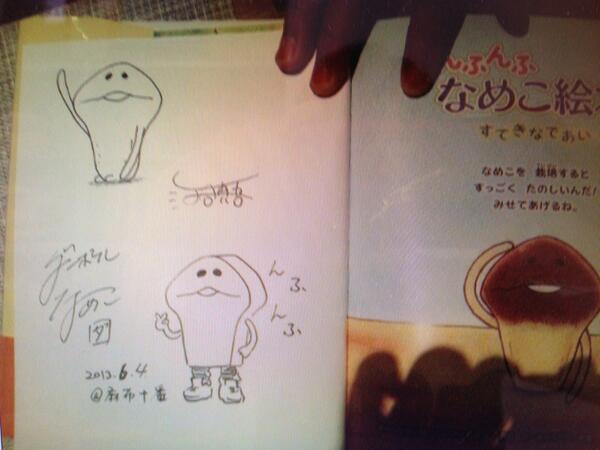 んふ
んふ
なめこ
図
2013.6.4
@麻布十番
んふんふ
なめこ絵
すてきなであい
なめこを 栽培すると
すっごく たのしいんだ!
みせてあげるね。